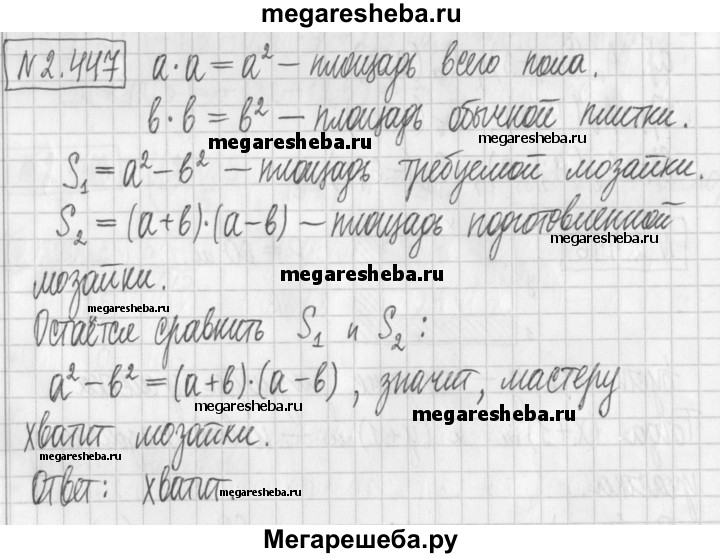 megaresheba.ru
№ 2.447 a·a = a² – площадь всего пола.
в·в = в² – площадь обычной плитки.
megaresheba.ru megaresheba.ru
S₁ = a² – в² – площадь требуемой мозайки.
megaresheba.ru
S₂ = (a+в)·(a–в) – площадь подготовленной
megaresheba.ru
мозайки.
megaresheba.ru
megaresheba.ru
Остаётся сравнить S₁ и S₂:
a² – в² = (a+в)·(a–в), значит, мастеру
megaresheba.ru megaresheba.ru
хватит мозайки.
megaresheba.ru
Ответ: хватит
megaresheba.ru
Мегарешеба.ру